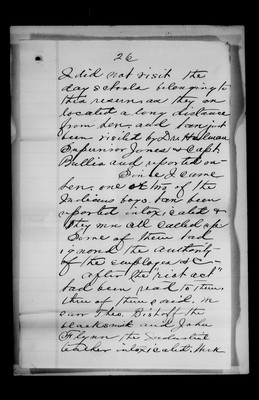 26
I did not visit the
day schools belonging to
this reserv. as they are
located a long distance
from here, and have just
been visited by Drs.
Supervisor Jones & Capt
Pullia and reported on
Since I came
here, one of the
Indians boys have been
reported intoxicated &
they were all called up
Some of them had
ignored the authority
of the employees &c
after the "riot act"
had been read to them
three of them said: we
saw Theo. Bishoff the
blacksmith and John
Flynn the Industrial
teacher intoxicated.